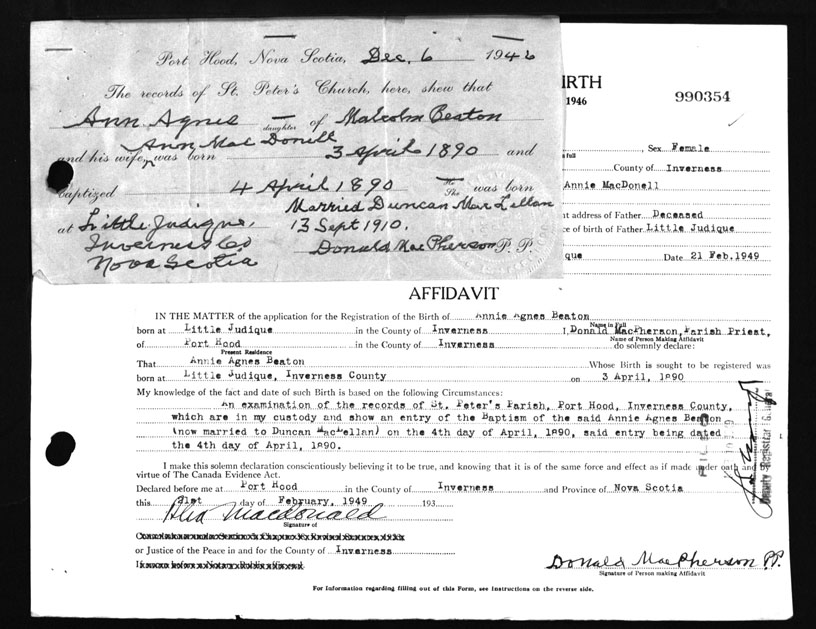 Port Hood, Nova Scotia, Dec. 6 1946
The records of St. Peter's Church, here, shew that
Ann Agnes daughter of Malcolm Beaton
Ann Mac Donell
and his wife, was born 3 April 1890 and
baptized 4 April 1890 He She was born
Married Duncan MacLellan
at Little Judique, 13 Sept 1910.
Inverness Co Donald MacPherson P.P.
Nova Scotia
IRTH
1946
990354
Sex Female
County of Inverness
Annie MacDonell
address of Father Deceased
ce of birth of Father Little Judique
que Date 21 Feb. 1949
AFFIDAVIT
IN THE MATTER of the application for the Registration of the Birth of Annie Agnes Beaton
Name in Full
born at Little Judique in the County of Inverness I, Donald MacPherson, Parish Priest,
Name of Person Making Affidavit
of Port Hood in the County of Inverness do solemnly declare:
Present Residence
That Annie Agnes Beaton Whose Birth is sought to be registered was
born at Little Judique, Inverness County on 3 April, 1890
My knowledge of the fact and date of such Birth is based on the following Circumstances:
An examination of the records of St. Peter's Parish, Port Hood, Inverness County,
which are in my custody and show an entry of the Baptism of the said Annie Agnes Beaton
(now married to Duncan MacLellan) on the 4th day of April, 1890, said entry being dated
the 4th day of April, 1890.
I make this solemn declaration conscientiously believing it to be true, and knowing that it is of the same force and effect as if made under oath and by
virtue of The Canada Evidence Act.
Declared before me at Port Hood in the County of Inverness and Province of Nova Scotia
this 21st day of February, 1949 193
Alex Macdonald
Signature of
or Justice of the Peace in and for the County of Inverness
Donald MacPherson P.P.
Signature of Person making Affidavit
For Information regarding filling out of this Form, see Instructions on the reverse side.
Deputy Registrar General